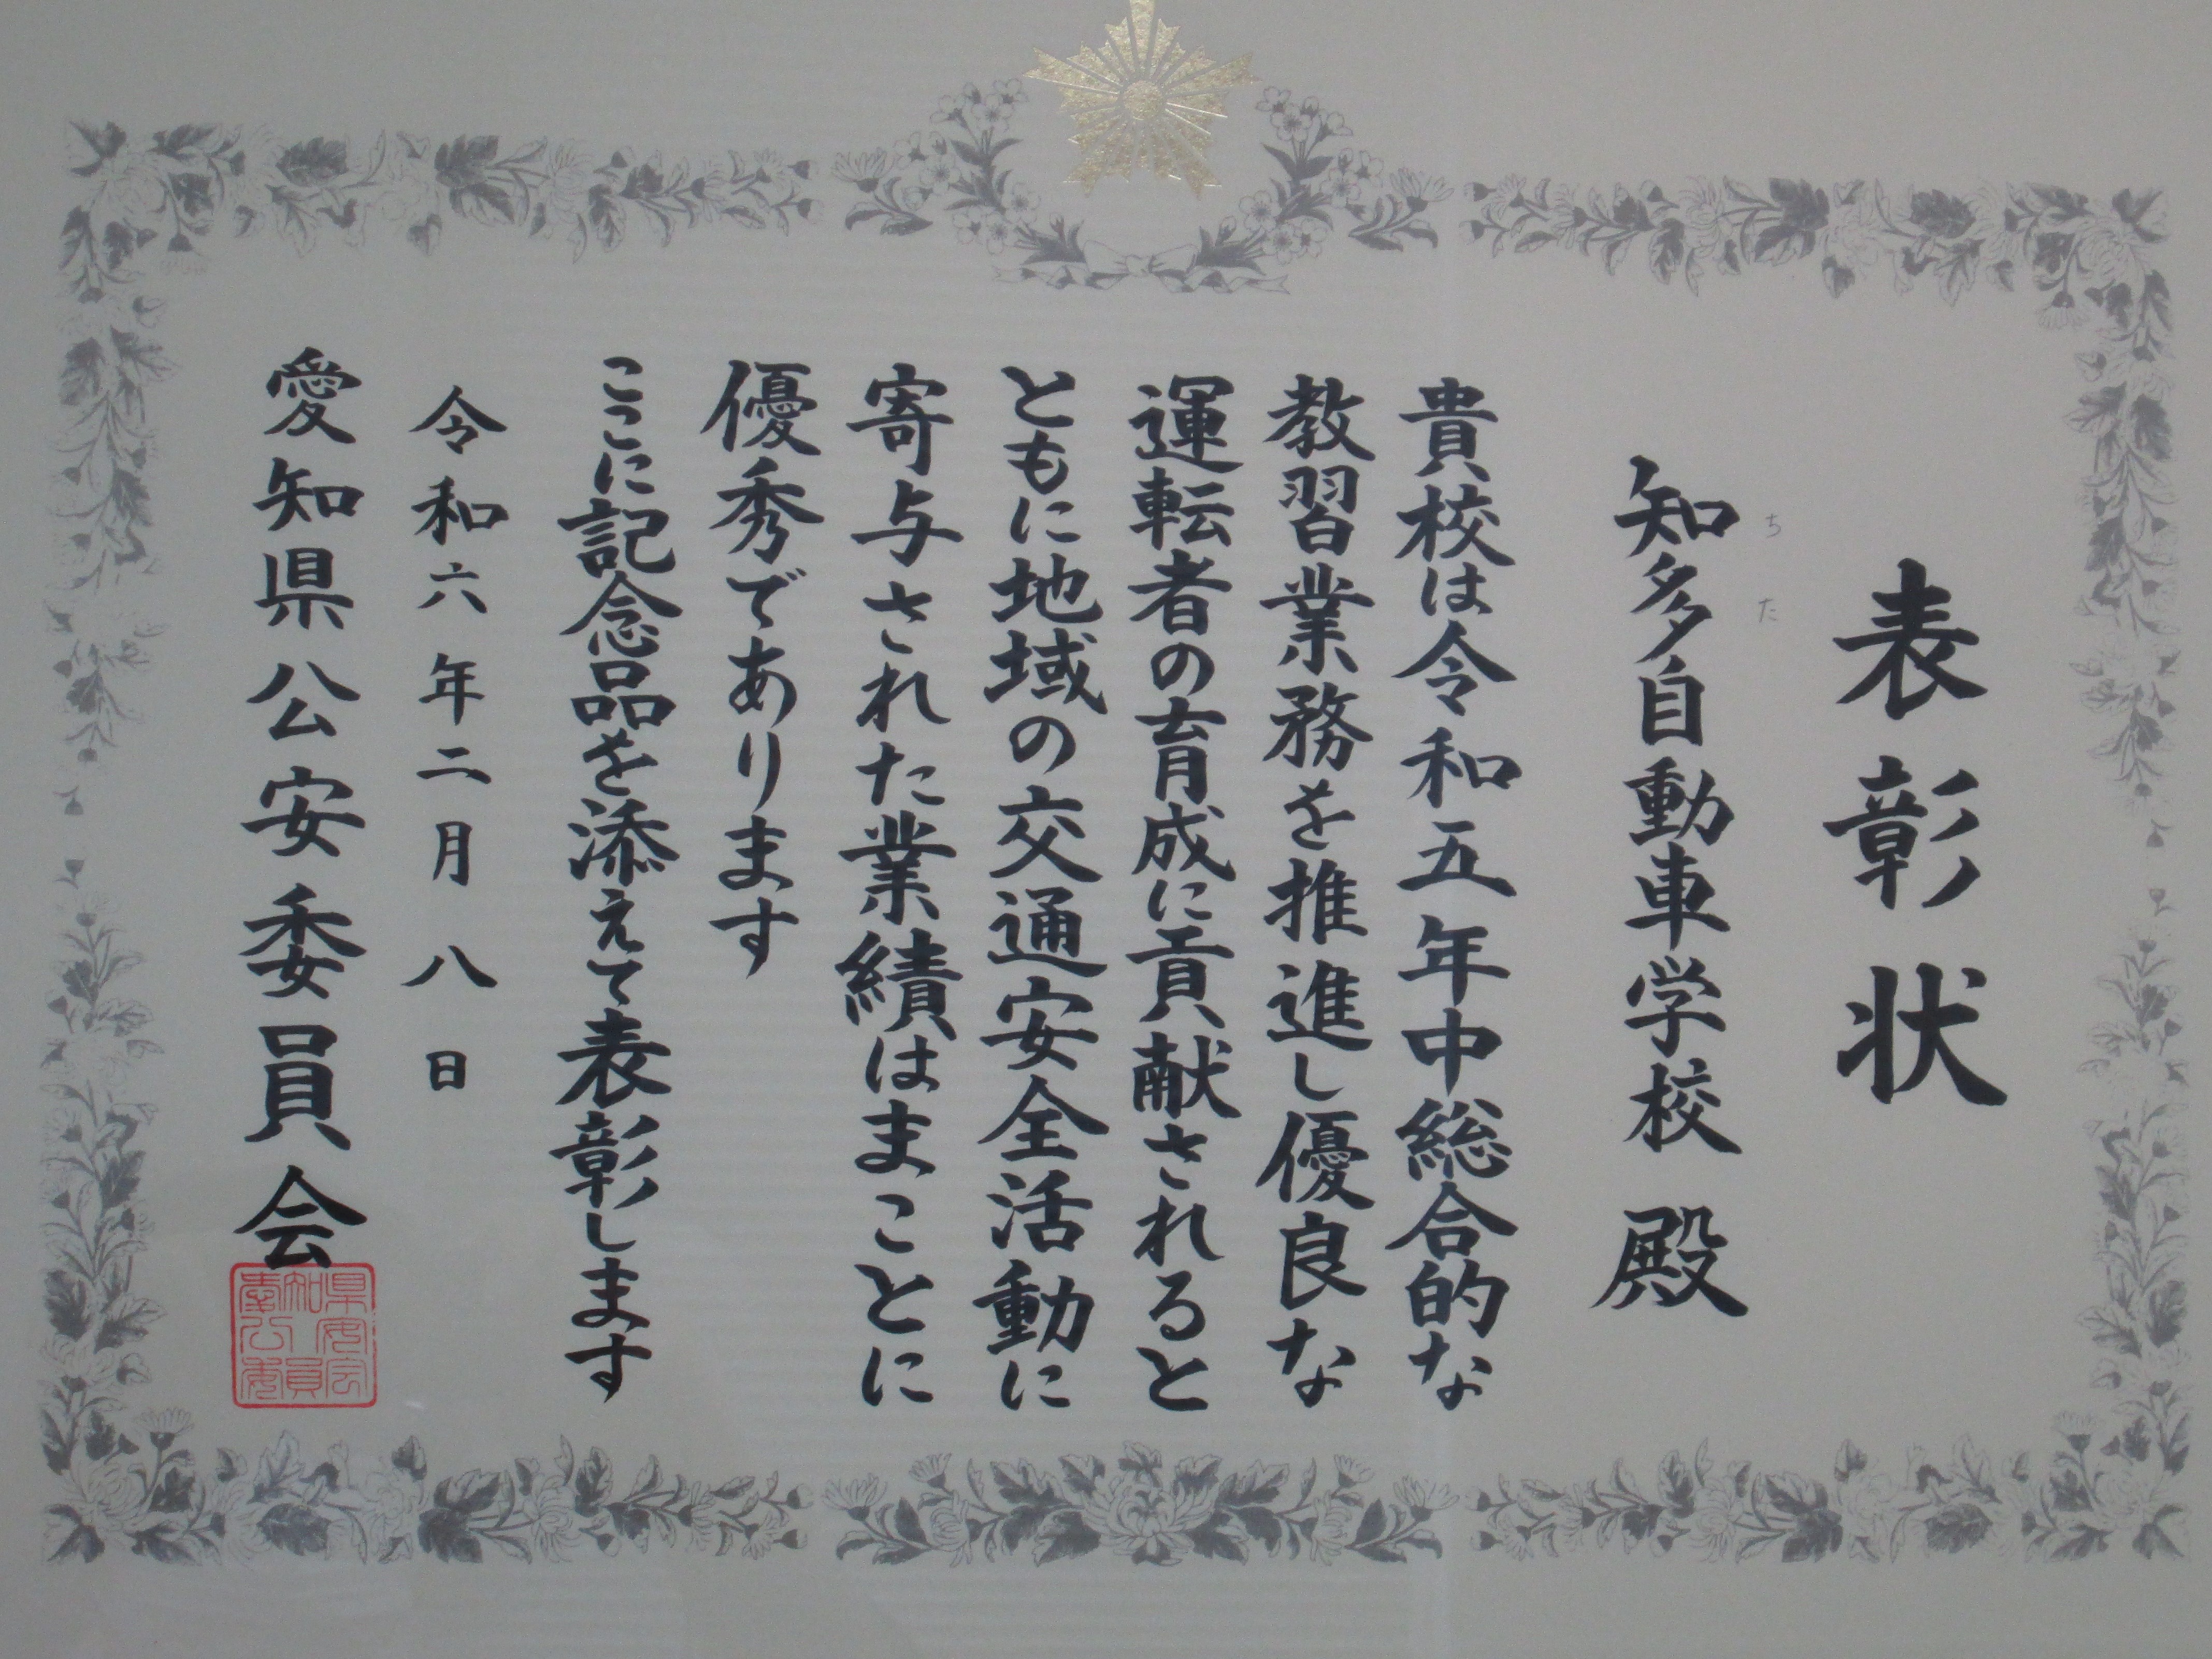 表彰状
知多自動車学校 殿
ちた
貴校は令和五年中総合的な
教習業務を推進し優良な
運転者の育成に貢献されると
ともに地域の交通安全活動に
寄与された業績はまことに
優秀であります
ここに記念品を添えて表彰します
令和六年二月八日
愛知県公安委員会
愛知県公安委員会